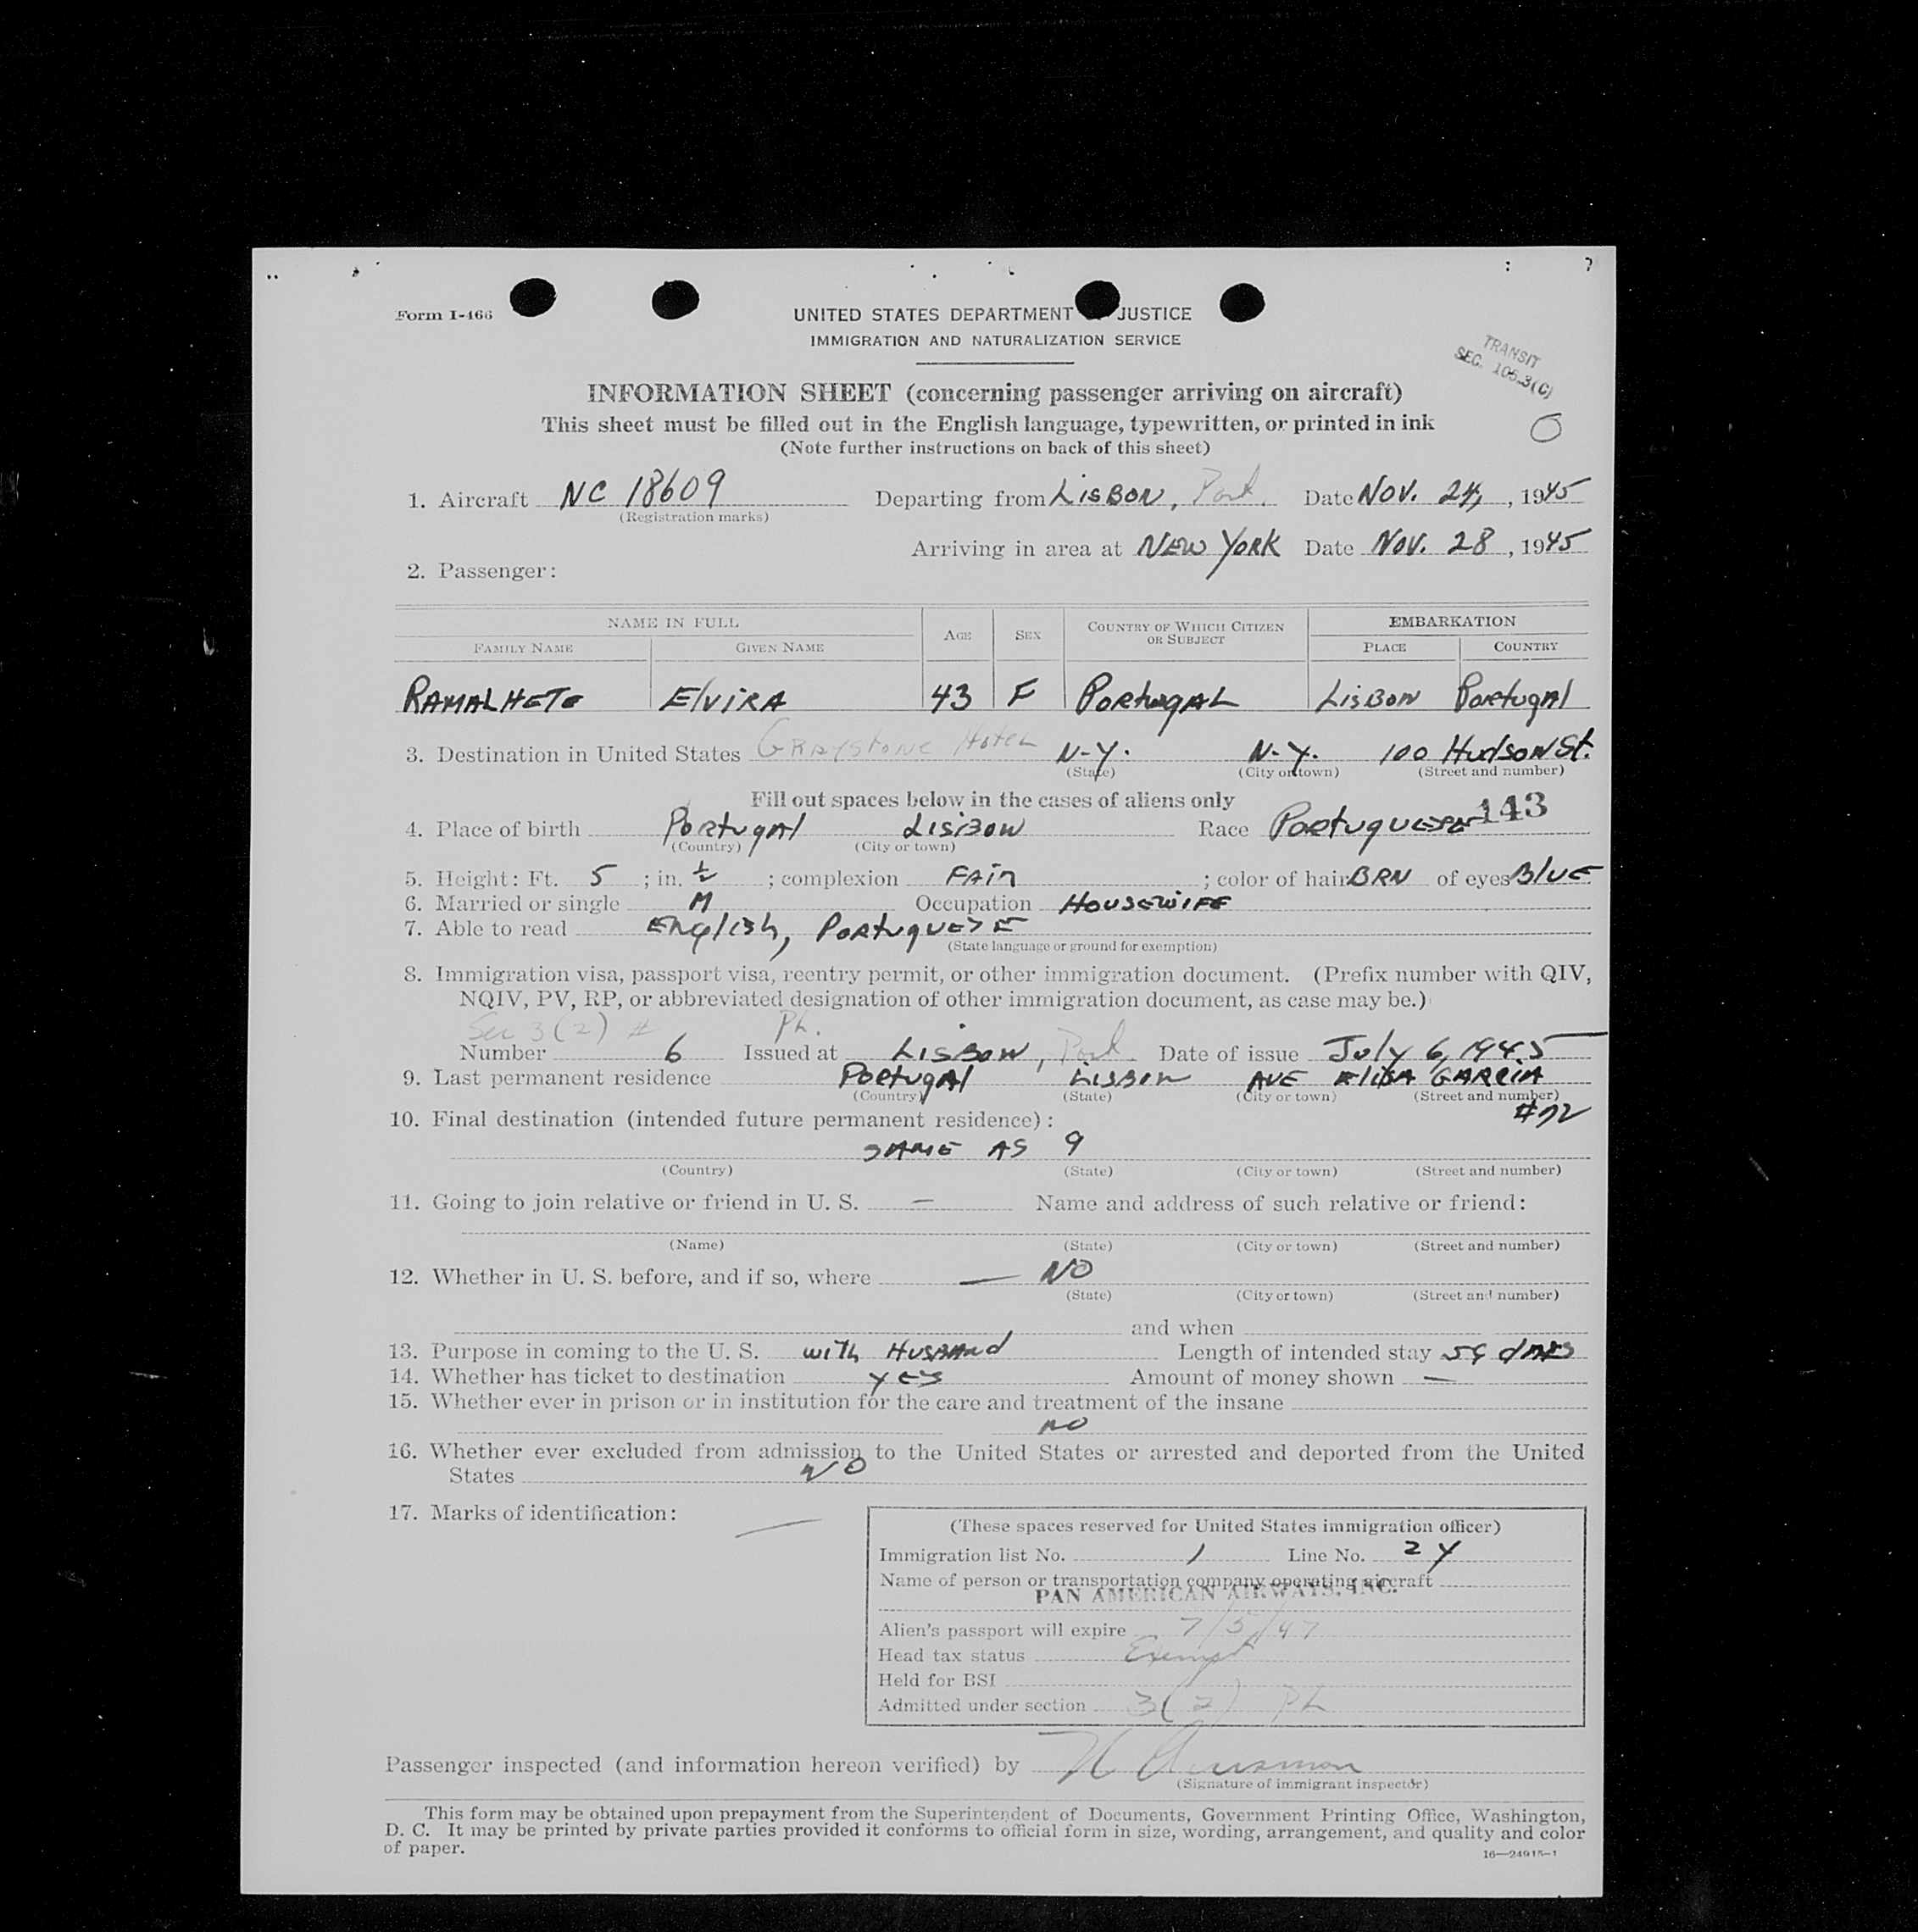 Form I-466
UNITED STATES DEPARTMENT JUSTICE
IMMIGRATION AND NATURALIZATION SERVICE
TRANSIT
SEC. 105.3(C)
INFORMATION SHEET (concerning passenger arriving on aircraft)
This sheet must be filled out in the English language, typewritten, or printed in ink
(Note further instructions on back of this sheet)
O
1. Aircraft NC 18609 Departing from LISBON, Port. Date NOV. 24, 1945
(Registration marks)
Arriving in area at NEW YORK Date NOV. 28, 1945
2. Passenger:
NAME IN FULL AGE SEX COUNTRY OF WHICH CITIZEN OR SUBJECT EMBARKATION
FAMILY NAME GIVEN NAME PLACE COUNTRY
RAMALHETE ELVIRA 43 F PORTUGAL LISBON PORTUGAL
3. Destination in United States GRAYSTONE HOTEL N-Y. N-Y. 100 HUDSON St.
(State) (City or town) (Street and number)
Fill out spaces below in the cases of aliens only
143
4. Place of birth PORTUGAL LISBON Race PORTUGUESE
(Country) (City or town)
5. Height: Ft. 5 ; in. ½ ; complexion FAIR ; color of hair BRN of eyes BLUE
6. Married or single M Occupation HOUSEWIFE
7. Able to read English, PORTUGUESE
(State language or ground for exemption)
8. Immigration visa, passport visa, reentry permit, or other immigration document. (Prefix number with QIV,
NQIV, PV, RP, or abbreviated designation of other immigration document, as case may be.)
Sec 3(2) # Ph.
Number 6 Issued at LISBON, Port. Date of issue July 6, 1945
9. Last permanent residence PORTUGAL LISBON AVE ELISA GARCIA
(Country) (State) (City or town) (Street and number)
#72
10. Final destination (intended future permanent residence):
SAME AS 9
(Country) (State) (City or town) (Street and number)
11. Going to join relative or friend in U. S. — Name and address of such relative or friend:
(Name) (State) (City or town) (Street and number)
12. Whether in U. S. before, and if so, where — NO
(State) (City or town) (Street and number)
and when
13. Purpose in coming to the U. S. with HUSBAND Length of intended stay 59 days
14. Whether has ticket to destination yes Amount of money shown —
15. Whether ever in prison or in institution for the care and treatment of the insane
NO
16. Whether ever excluded from admission to the United States or arrested and deported from the United
States NO
17. Marks of identification: —
(These spaces reserved for United States immigration officer)
Immigration list No. 1 Line No. 24
Name of person or transportation company operating aircraft
PAN AMERICAN AIRWAYS, INC.
Alien's passport will expire 7/5/47
Head tax status Exempt
Held for BSI
Admitted under section 3(2) Ph
Passenger inspected (and information hereon verified) by
(Signature of immigrant inspector)
This form may be obtained upon prepayment from the Superintendent of Documents, Government Printing Office, Washington,
D. C. It may be printed by private parties provided it conforms to official form in size, wording, arrangement, and quality and color
of paper.
16—24915-1